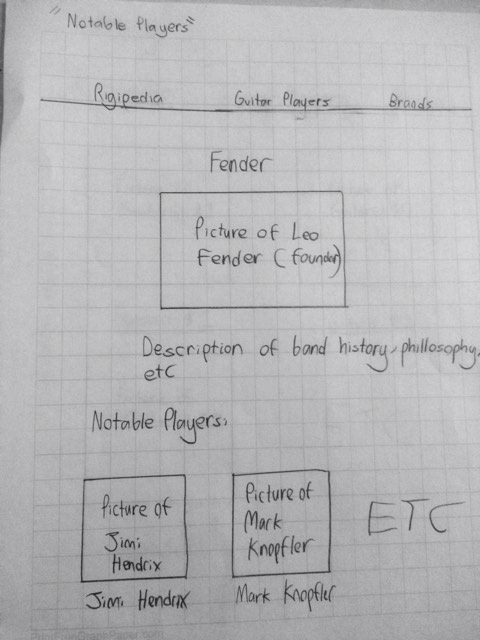 "Notable Players"
Rigipedia Guitar Players Brands
Fender
Picture of Leo
Fender (founder)
Description of band history, phillosophy,
etc
Notable Players:
Picture of
Jimi
Hendrix
Jimi Hendrix
Picture of
Mark
Knopfler
Mark Knopfler
ETC